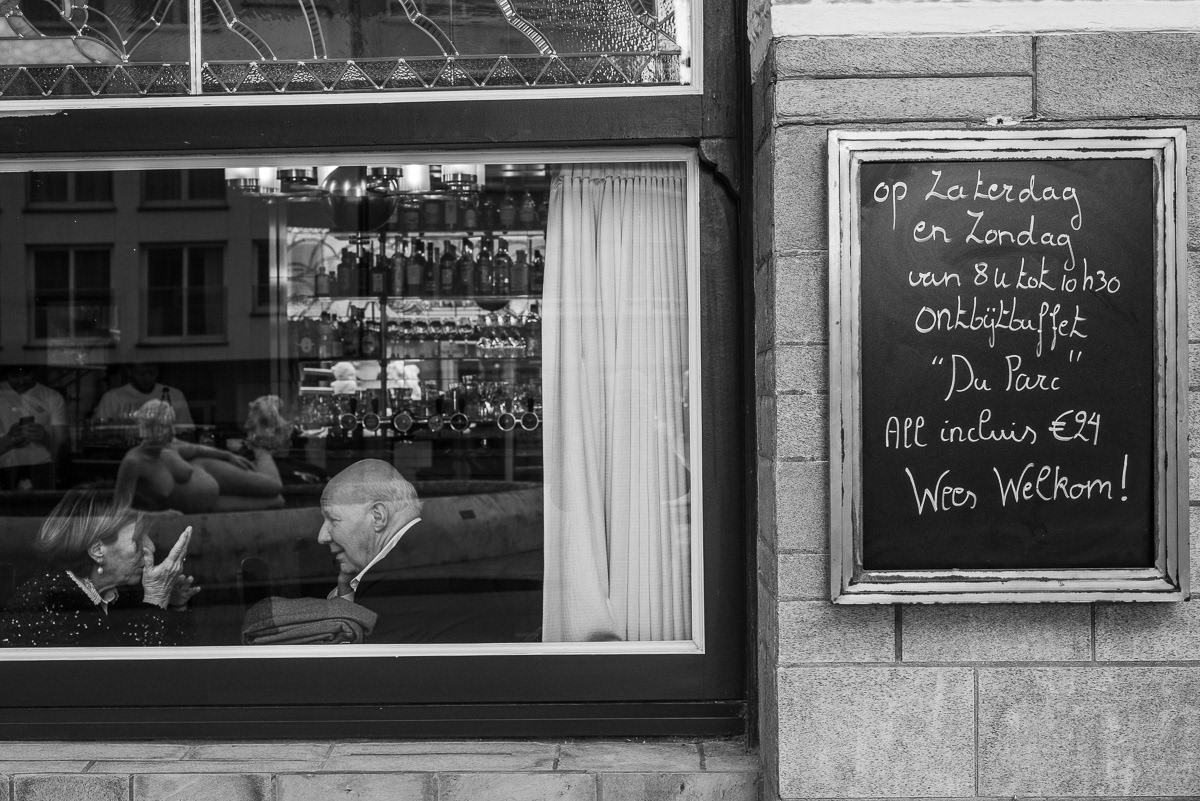 op Zaterdag
en Zondag
van 8u tot 10h30
ontbijtbuffet
"Du Parc"
All incluis €24
Wees Welkom!